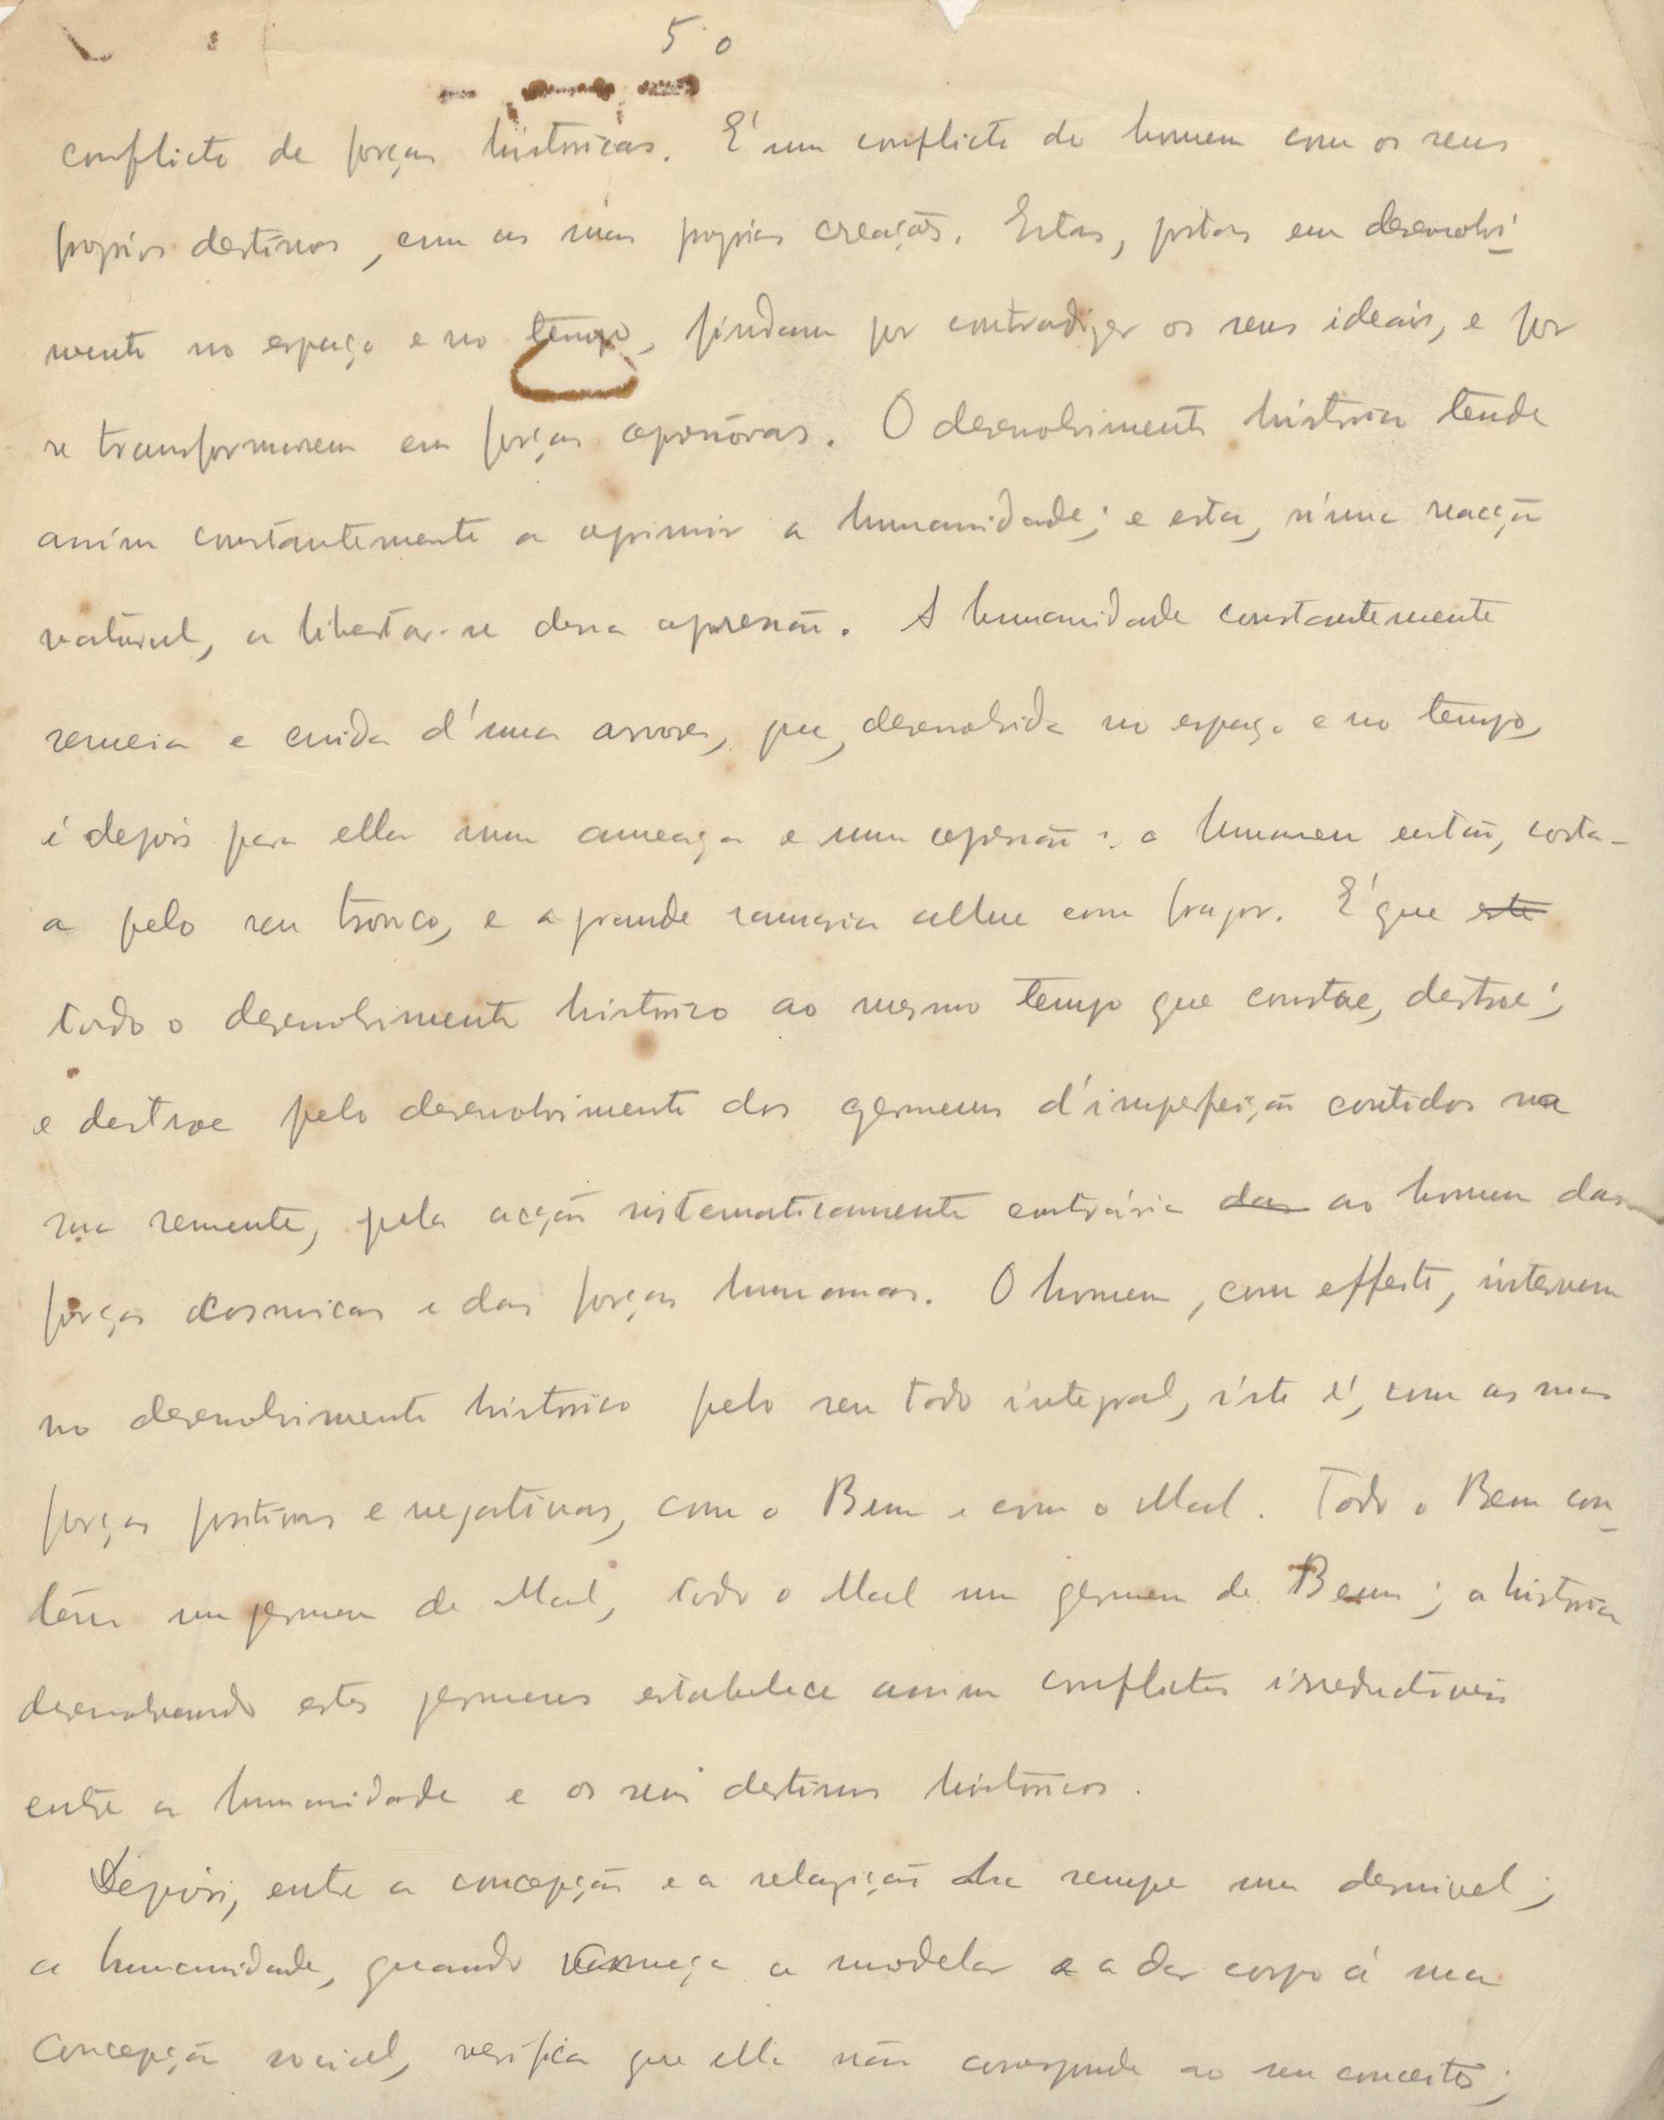 5.º
conflicto de forças históricas. É um conflicto do homem com os seus
proprios destinos, com as suas proprias creações. Estas, postas em desenvolvi-
mento no espaço e no tempo, findam por contradizer os seus ideais, e por
se transformarem em forças opressôras. O desenvolvimento historico tende
assim constantemente a oprimir a humanidade; e esta, n'uma reacção
natural, a libertar-se dessa opressão. A humanidade constantemente
semeia e cuida d'uma arvore, que, desenvolvida no espaço e no tempo,
é depois para ella uma ameaça e uma opressão: o homem então, corta-
a pelo seu tronco, e a grande ramaria allue com fragor. É que ~~este~~
todo o desenvolvimento historico ao mesmo tempo que constroe, destroe;
e destroe pelo desenvolvimento dos germens d'imperfeição contidos na
sua semente, pela acção sistematicamente contrária ~~das~~ ao homem das
forças cosmicas e das forças humanas. O homem, com effeito, intervem
no desenvolvimento historico pelo seu todo integral, isto é, com as suas
forças positivas e negativas, com o Bem e com o Mal. Todo o Bem con-
têm um germen de Mal, todo o Mal um germen de Bem; a historia
desenvolvendo estes germens estabelece assim conflictos irreductiveis
entre a humanidade e os seus destinos históricos.
Depois, entre a concepção e a ha sempe um desnivel;
a humanidade, quando começa a modelar e a dar corpo á sua
concepção social, verifica que ella não corresponde ao seu conceito;